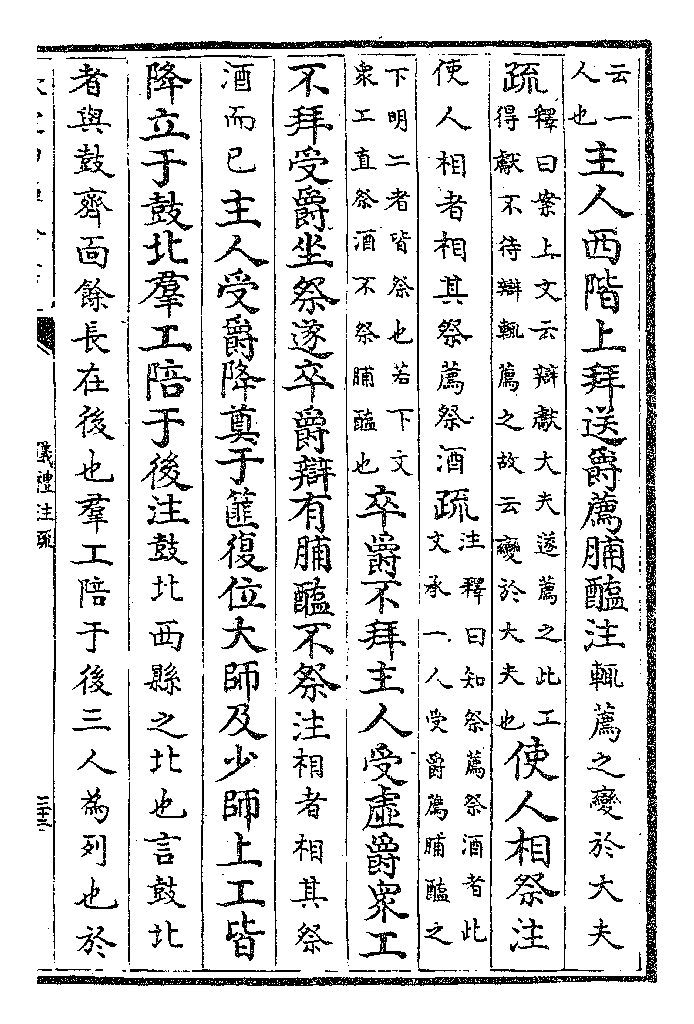 云一人也主人西階上拜送爵薦脯醢注輒薦之變於大夫
疏釋曰案上文云辯獻大夫遂薦之此工得獻不待辯輒薦之故云變於大夫也使人相祭注
使人相者相其祭薦祭酒疏注釋曰知祭薦祭酒者此文承一人受爵薦脯醢之
下明二者皆祭也若下文衆工直祭酒不祭脯醢也卒爵不拜主人受虛爵衆工
不拜受爵坐祭遂卒爵辯有脯醢不祭注相者相其祭
酒而已主人受爵降奠于篚復位大師及少師上工皆
降立于鼓北羣工陪于後注鼓北西縣之北也言鼓北
者與鼓齊面餘長在後也羣工陪于後三人為列也於
儀禮注疏